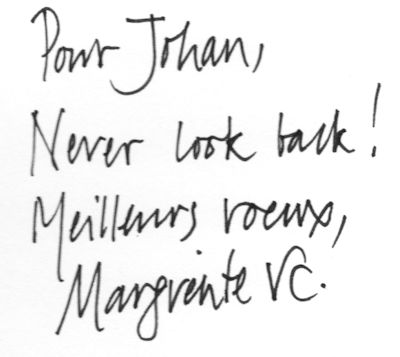 Pour Johan,
Never look back!
Meilleurs voeux,
Marguerite VC.